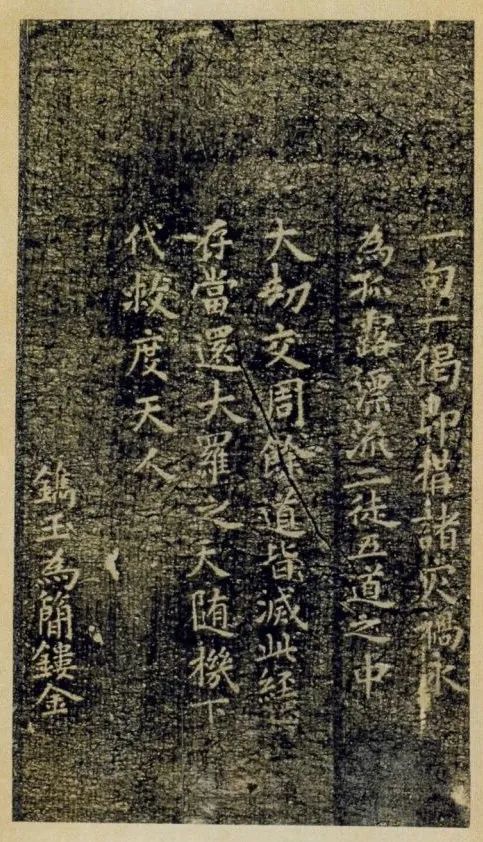 一句一偈即稱諸灾禍永
為孤露漂流二徒五道之中
大劫交周餘道皆滅此經
存當還大羅之天随機下
代救度天人
鐫玉為簡鏤金